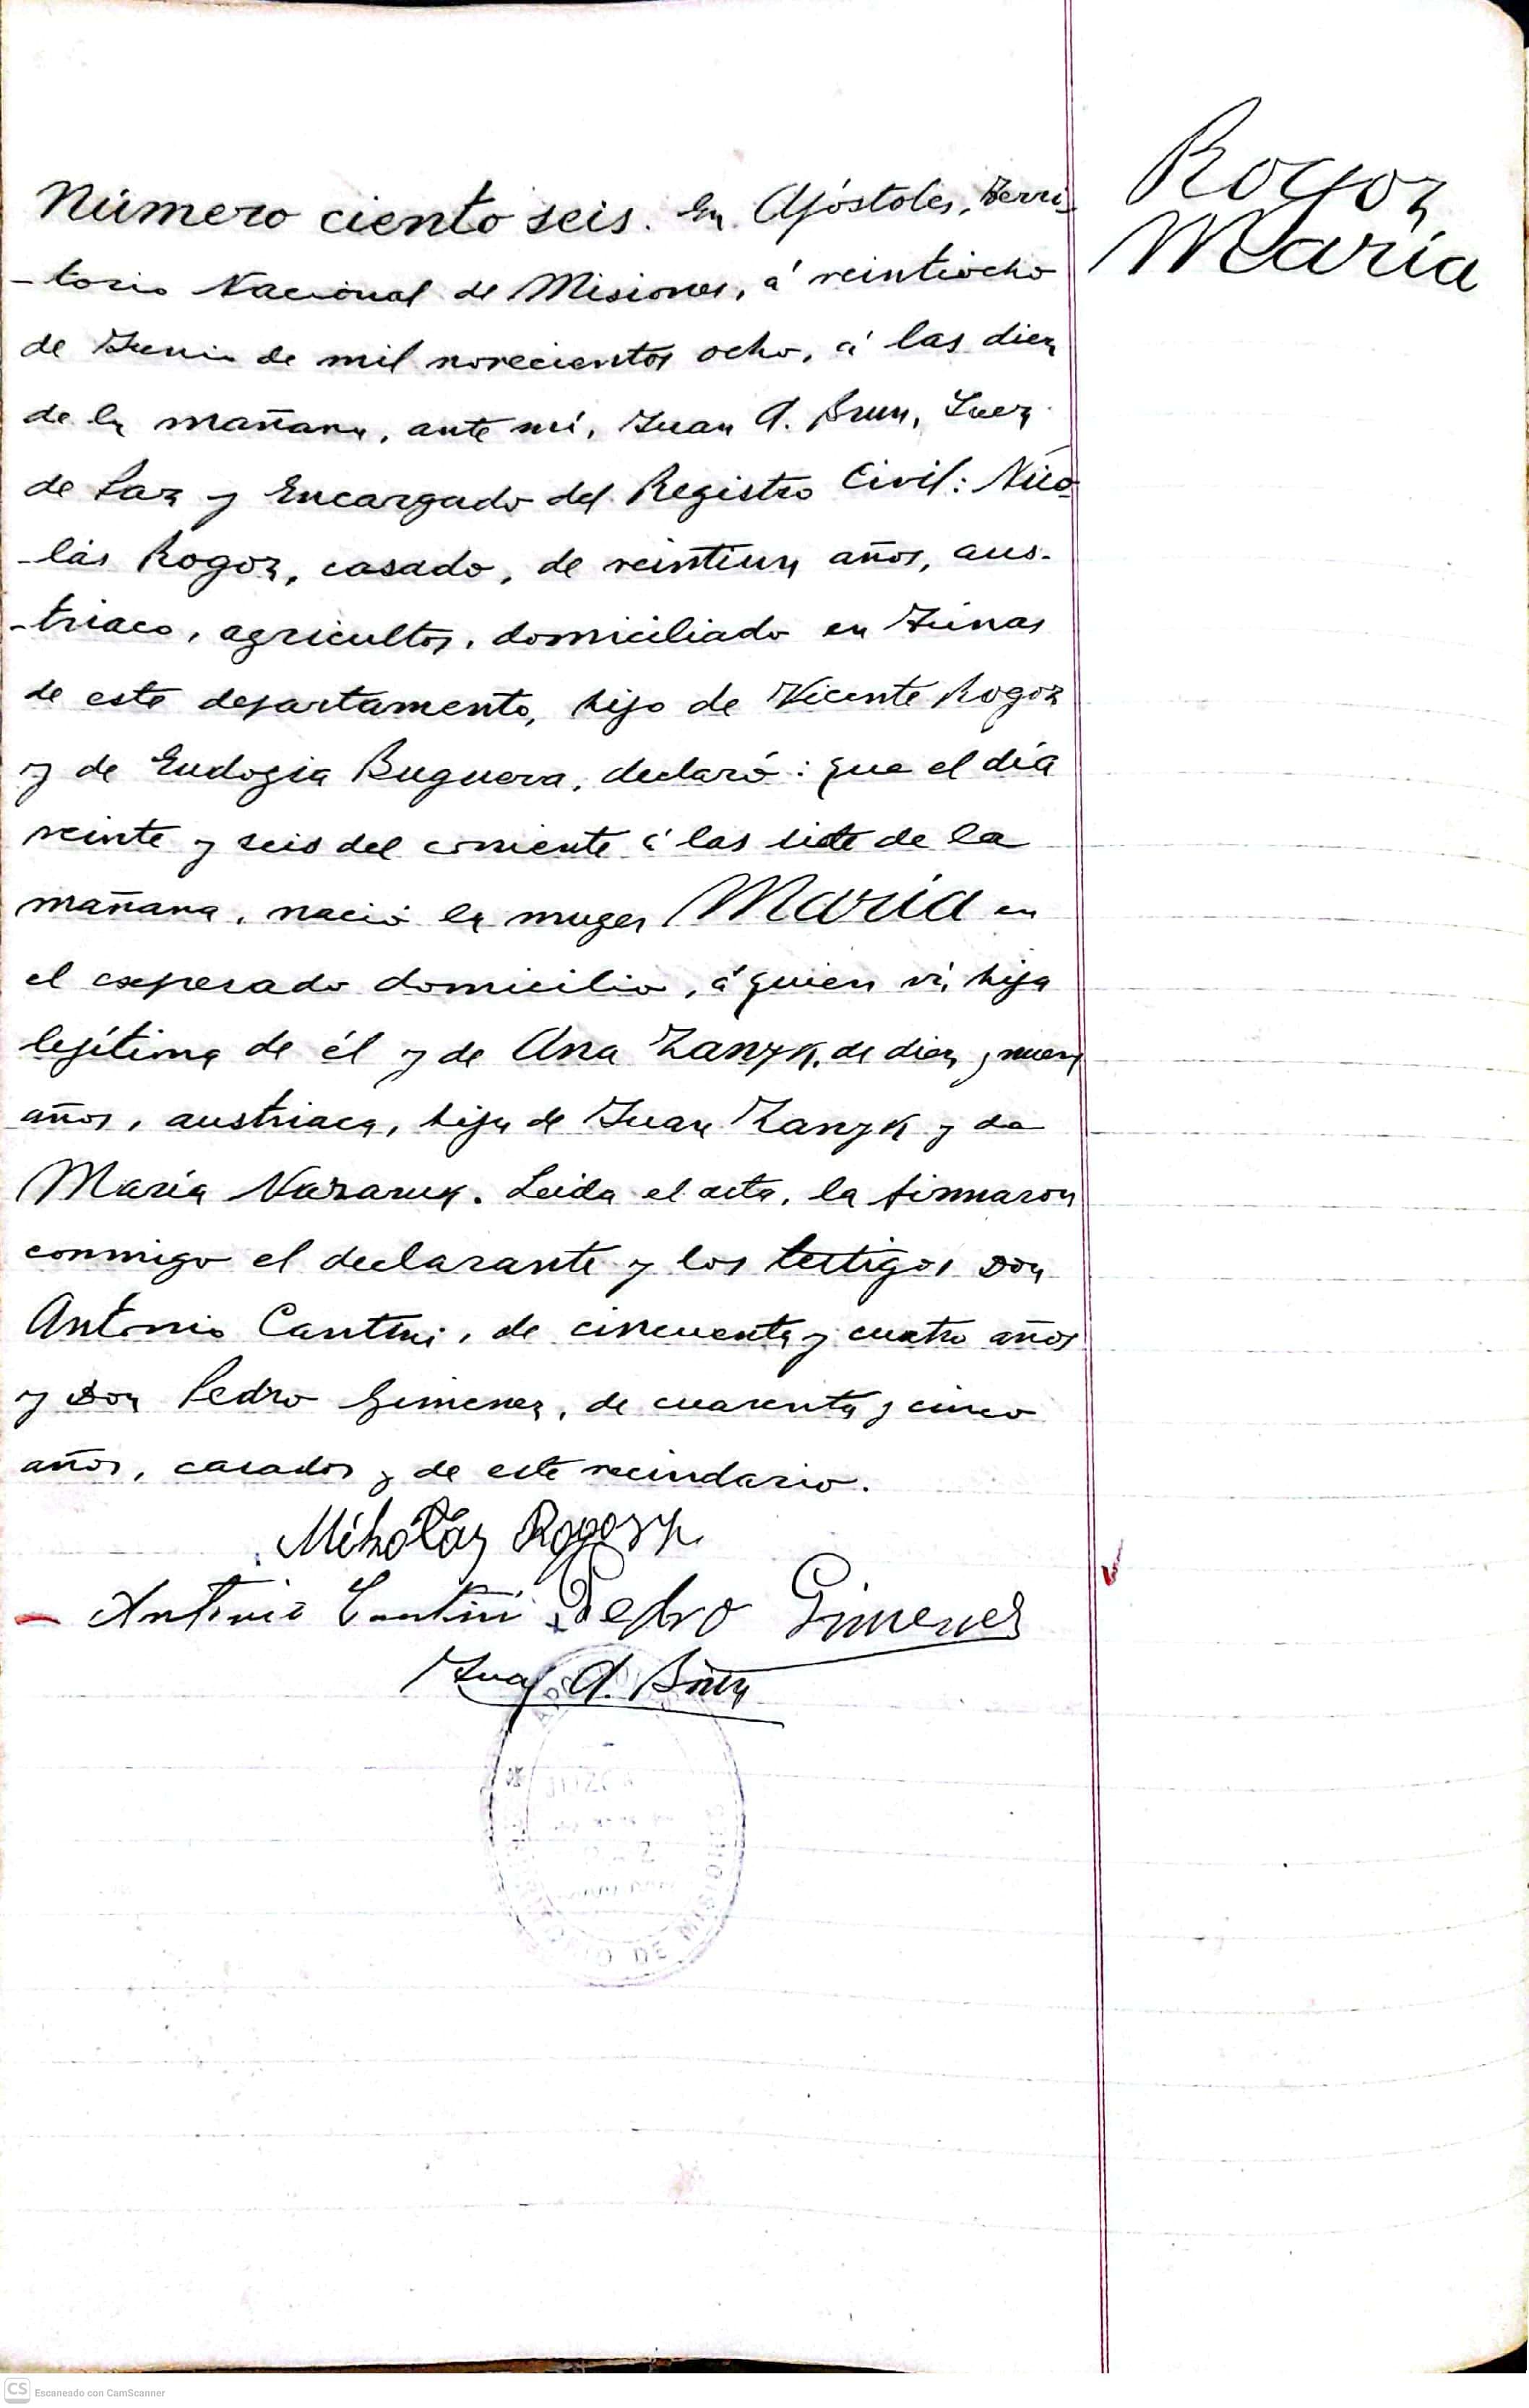 Rogoz
María
Número ciento seis. En Apóstoles, Terri-
-torio Nacional de Misiones, á veintiocho
de Junio de mil novecientos ocho, á las diez
de la mañana, ante mí, Juan A. Brun, Juez
de Paz y Encargado del Registro Civil: Nico-
-lás Rogoz, casado, de veintiun años, aus-
-triaco, agricultor, domiciliado en
de este departamento, hijo de Vicente Rogoz
y de Eudogia Buguera, declaró: que el día
veinte y seis del corriente á las siete de la
mañana, nació la muger María en
el expresado domicilio, á quien ví, hija
legítima de él y de Ana de diez y nueve
años, austriaca, hija de Juan y de
María Leida el acta, la firmaron
conmigo el declarante y los testigos Don
Antonio Cantini, de cincuenta y cuatro años
y Don Pedro Gimenez, de cuarenta y cinco
años, casados y de este vecindario.
Antonio Cantini Pedro Gimenez
Juan A. Brun
JUZG
PAZ
O DE MISIONES
CS Escaneado con CamScanner